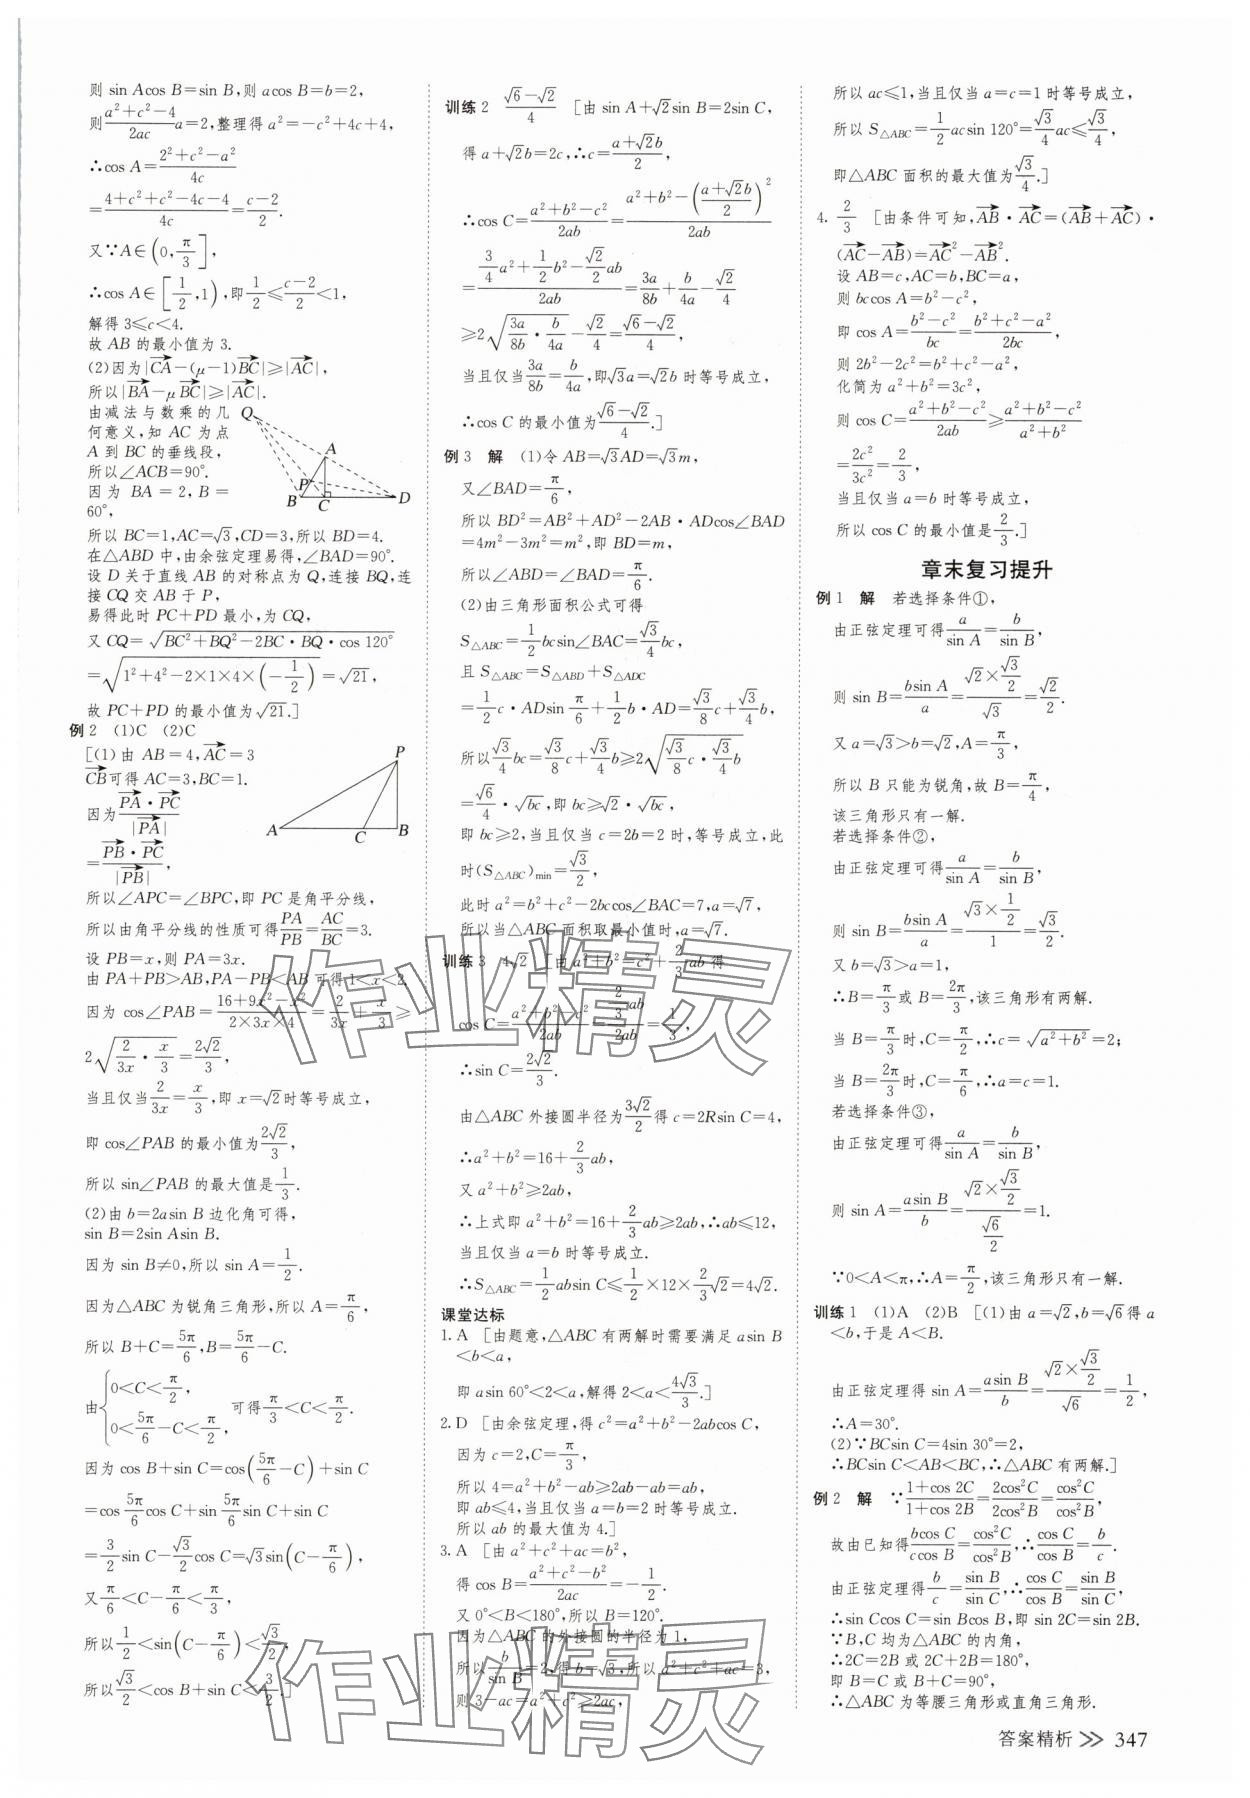 则 sin Acos B=sin B,则 acos B=b=2,
则(a²+c²-4)/(2ac)·a=2,整理得 a²=-c²+4c+4,
∴cos A=(2²+c²-a²)/(4c)
=(4+c²+c²-4c-4)/(4c)=(c-2)/2.
又∵A∈(0,π/3],
∴cos A∈[1/2,1),即1/2≤(c-2)/2<1,
解得 3≤c<4.
故 AB 的最小值为 3.
(2)因为|CA-(μ-1)BC|≥|AC|,
所以|BA-μBC|≥|AC|.
由减法与数乘的几
何意义,知 AC 为点
A 到 BC 的垂线段,
所以∠ACB=90°.
因为 BA=2,B=
60°,
Q A P B C D
所以 BC=1,AC=√3,CD=3,所以 BD=4.
在△ABD 中,由余弦定理易得,∠BAD=90°.
设 D 关于直线 AB 的对称点为 Q,连接 BQ,连
接 CQ 交 AB 于 P,
易得此时 PC+PD 最小,为 CQ,
又 CQ=√(BC²+BQ²-2BC·BQ·cos 120°)
=√(1²+4²-2×1×4×(-1/2))=√21,
故 PC+PD 的最小值为√21.]
例 2 (1)C (2)C
[(1)由 AB=4,AC=3
CB可得 AC=3,BC=1.
因为(PA·PC)/|PA|
=(PB·PC)/|PB|,
P A C B
所以∠APC=∠BPC,即 PC 是角平分线,
所以由角平分线的性质可得PA/PB=AC/BC=3.
设 PB=x,则 PA=3x.
由 PA+PB>AB,PA-PB<AB 可得 1<x<2.
因为 cos∠PAB=(16+9x²-x²)/(2×3x×4)=2/(3x)+x/3≥
2√(2/(3x)·x/3)=2√2/3,
当且仅当2/(3x)=x/3,即 x=√2时等号成立,
即 cos∠PAB 的最小值为2√2/3,
所以 sin∠PAB 的最大值是1/3.
(2)由 b=2asin B 边化角可得,
sin B=2sin Asin B.
因为 sin B≠0,所以 sin A=1/2.
因为△ABC 为锐角三角形,所以 A=π/6,
所以 B+C=5π/6,B=5π/6-C.
由{0<C<π/2, 0<5π/6-C<π/2, 可得π/3<C<π/2.
因为 cos B+sin C=cos(5π/6-C)+sin C
=cos5π/6cos C+sin5π/6sin C+sin C
=3/2sin C-√3/2cos C=√3sin(C-π/6),
又π/6<C-π/6<π/3,
所以1/2<sin(C-π/6)<√3/2,
所以√3/2<cos B+sin C<3/2.]
训练 2 (√6-√2)/4 [由 sin A+√2sin B=2sin C,
得 a+√2b=2c,∴c=(a+√2b)/2,
∴cos C=(a²+b²-c²)/(2ab)=(a²+b²-((a+√2b)/2)²)/(2ab)
=(3/4a²+1/2b²-√2/2ab)/(2ab)=3a/8b+b/4a-√2/4
≥2√(3a/8b·b/4a)-√2/4=(√6-√2)/4,
当且仅当3a/8b=b/4a,即√3a=√2b 时等号成立,
∴cos C 的最小值为(√6-√2)/4.]
例 3 解 (1)令 AB=√3AD=√3m,
又∠BAD=π/6,
所以 BD²=AB²+AD²-2AB·ADcos∠BAD
=4m²-3m²=m²,即 BD=m,
所以∠ABD=∠BAD=π/6.
(2)由三角形面积公式可得
S△ABC=1/2bcsin∠BAC=√3/4bc,
且 S△ABC=S△ABD+S△ADC
=1/2c·ADsinπ/6+1/2b·AD=√3/8c+√3/4b,
所以√3/4bc=√3/8c+√3/4b≥2√(√3/8c·√3/4b)
=√6/4·√bc,即 bc≥√2·√bc,
即 bc≥2,当且仅当 c=2b=2 时,等号成立,此
时(S△ABC)min=√3/2,
此时 a²=b²+c²-2bccos∠BAC=7,a=√7,
所以当△ABC 面积取最小值时,a=√7.
训练 3 4√2 [由 a²+b²=c²+2/3ab 得
cos C=(a²+b²-c²)/(2ab)=(2/3ab)/(2ab)=1/3,
∴sin C=2√2/3.
由△ABC 外接圆半径为3√2/2得 c=2Rsin C=4,
∴a²+b²=16+2/3ab,
又 a²+b²≥2ab,
∴上式即 a²+b²=16+2/3ab≥2ab,∴ab≤12,
当且仅当 a=b 时等号成立.
∴S△ABC=1/2absin C≤1/2×12×2/3√2=4√2.
课堂达标
1. A [由题意,△ABC 有两解时需要满足 asin B
<b<a,
即 asin 60°<2<a,解得 2<a<4√3/3.]
2. D [由余弦定理,得 c²=a²+b²-2abcos C,
因为 c=2,C=π/3,
所以 4=a²+b²-ab≥2ab-ab=ab,
即 ab≤4,当且仅当 a=b=2 时等号成立.
所以 ab 的最大值为 4.]
3. A [由 a²+c²+ac=b²,
得 cos B=(a²+c²-b²)/(2ac)=-1/2.
又 0°<B<180°,所以 B=120°.
因为△ABC 的外接圆的半径为 1,
所以b/sin B=2,得 b=√3,所以 a²+c²+ac=3,
则 3-ac=a²+c²≥2ac,
所以 ac≤1,当且仅当 a=c=1 时等号成立,
所以 S△ABC=1/2acsin 120°=√3/4ac≤√3/4,
即△ABC 面积的最大值为√3/4.]
4. 2/3 [由条件可知,AB·AC=(AB+AC)·
(AC-AB)=AC²-AB².
设 AB=c,AC=b,BC=a,
则 bccos A=b²-c²,
即 cos A=(b²-c²)/(bc)=(b²+c²-a²)/(2bc),
则 2b²-2c²=b²+c²-a²,
化简为 a²+b²=3c²,
则 cos C=(a²+b²-c²)/(2ab)≥(a²+b²-c²)/(a²+b²)
=2c²/3c²=2/3,
当且仅当 a=b 时等号成立,
所以 cos C 的最小值是2/3.]
章末复习提升
例 1 解 若选择条件①,
由正弦定理可得a/sin A=b/sin B,
则 sin B=bsin A/a=(√2×√3/2)/√3=√2/2.
又 a=√3>b=√2,A=π/3,
所以 B 只能为锐角,故 B=π/4,
该三角形只有一解.
若选择条件②,
由正弦定理可得a/sin A=b/sin B,
则 sin B=bsin A/a=(√3×1/2)/1=√3/2.
又 b=√3>a=1,
∴B=π/3或 B=2π/3,该三角形有两解.
当 B=π/3时,C=π/2,∴c=√(a²+b²)=2;
当 B=2π/3时,C=π/6,∴a=c=1.
若选择条件③,
由正弦定理可得a/sin A=b/sin B,
则 sin A=asin B/b=(√2×√3/2)/(√6/2)=1.
∵0<A<π,∴A=π/2,该三角形只有一解.
训练 1 (1)A (2)B [(1)由 a=√2,b=√6得 a
<b,于是 A<B.
由正弦定理得 sin A=asin B/b=(√2×√3/2)/√6=1/2,
∴A=30°.
(2)∵BCsin C=4sin 30°=2,
∴BCsin C<AB<BC,∴△ABC 有两解.]
例 2 解 ∵(1+cos 2C)/(1+cos 2B)=2cos²C/2cos²B=cos²C/cos²B,
故由已知得bcos C/ccos B=cos²C/cos²B,∴cos C/cos B=b/c.
由正弦定理得b/c=sin B/sin C,∴cos C/cos B=sin B/sin C,
∴sin Ccos C=sin Bcos B,即 sin 2C=sin 2B.
∵B,C 均为△ABC 的内角,
∴2C=2B 或 2C+2B=180°,
即 B=C 或 B+C=90°,
∴△ABC 为等腰三角形或直角三角形.
答案精析 》 347
作业精灵
作业精灵